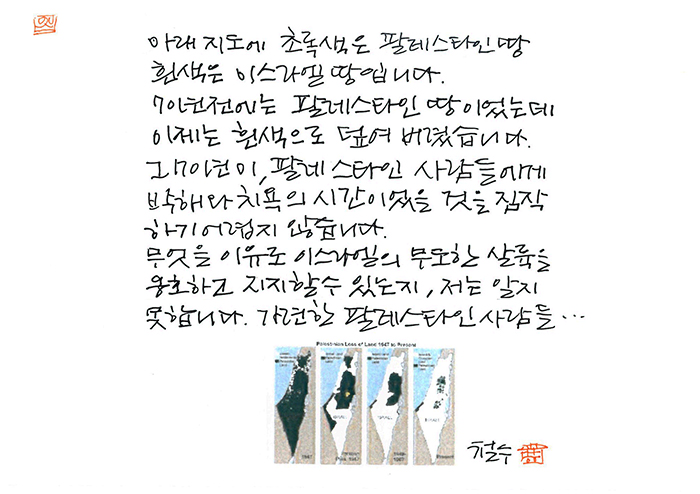 아래 지도에 초록색은 팔레스타인 땅
흰색은 이스라엘 땅입니다.
70년전에는 팔레스타인 땅이었는데
이제는 흰색으로 덮여 버렸습니다.
그 70년이, 팔레스타인 사람들에게
박해와 치욕의 시간이었을 것을 짐작
하기 어렵지 않습니다.
무엇을 이유로 이스라엘의 무도한 살륙을
옹호하고 지지할 수 있는지, 저는 알지
못합니다. 가련한 팔레스타인 사람들…
Palestinian Loss of Land 1947 to Present
1947
1949-
1967
Present
철수